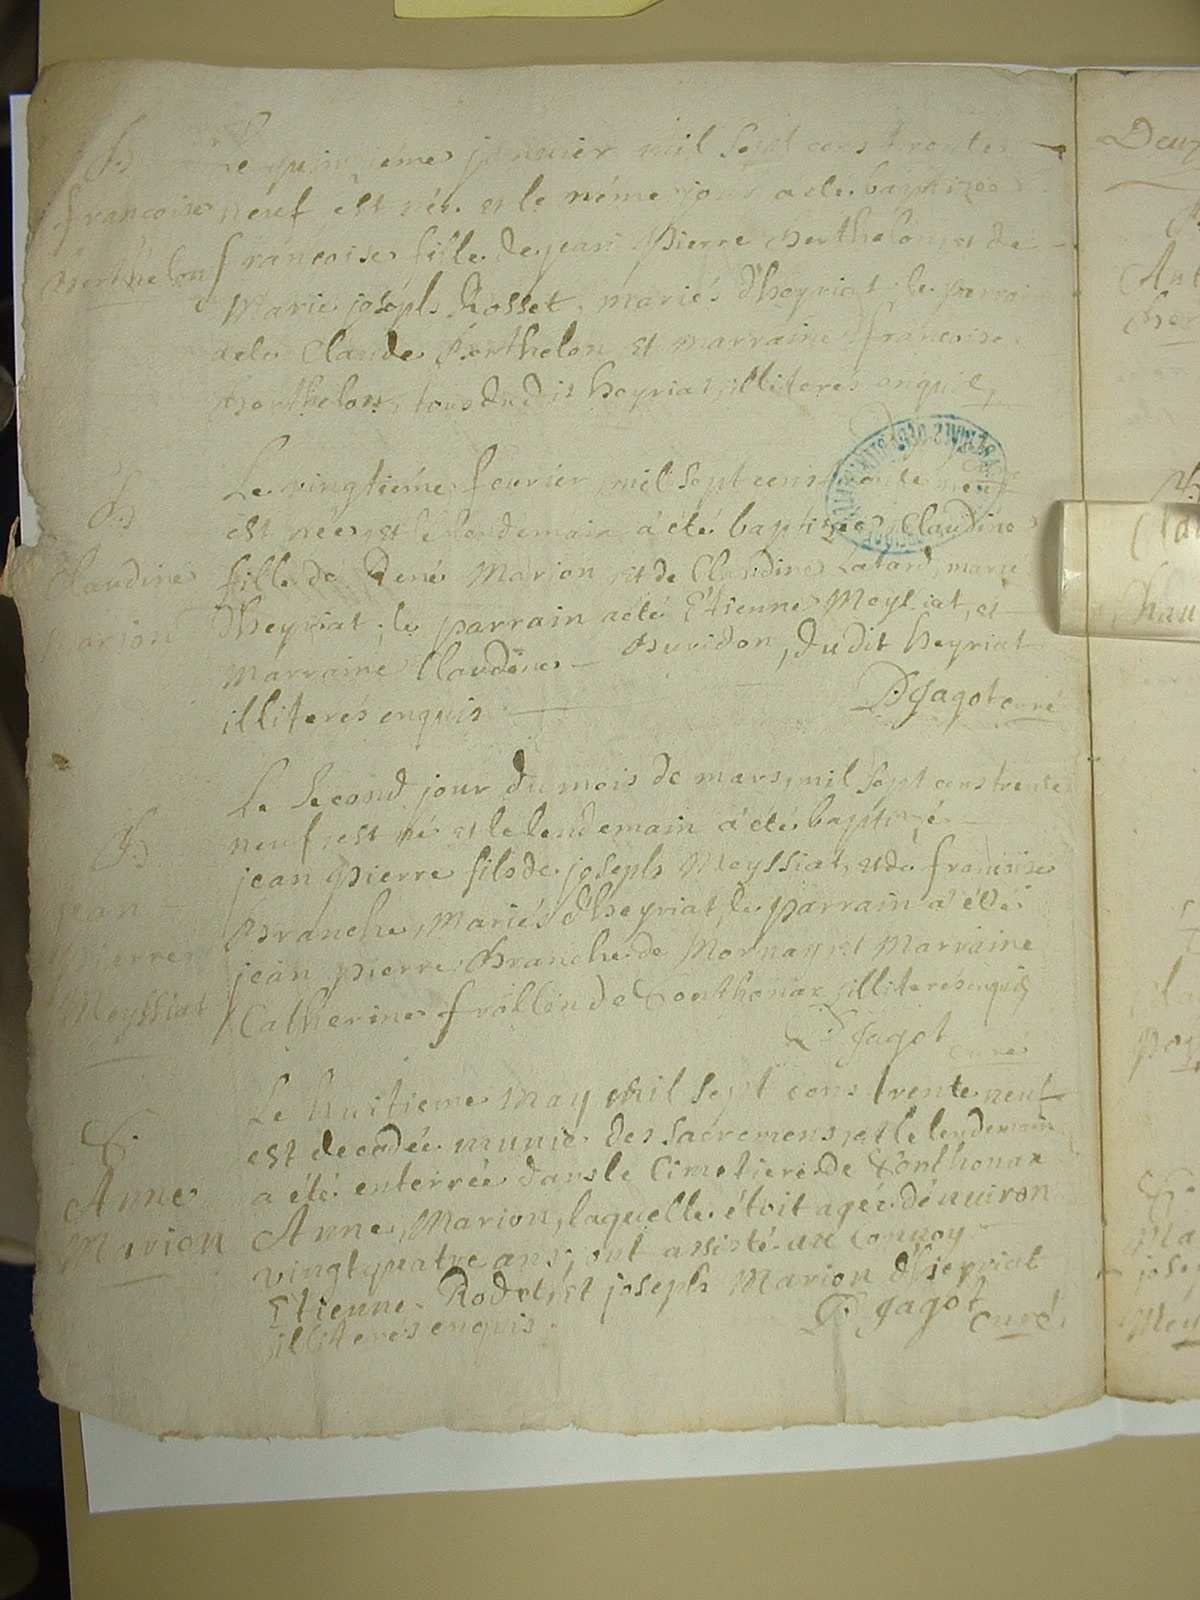 B.
françoise
Berthelon
Le quinzième janvier mil sept cens trente
neuf, est née et le même jour a été baptizée
françoise fille de jean Pierre Berthelon, et de
Marie joseph Rosset, mariés d'heyriat, le parrain
a été Claude Berthelon et marraine françoise
Berthelon, tous dudit heyriat illiterés enquis,
B.
Claudine
Marion
Le vingtième feurier mil sept cens trente neuf
est née, et le lendemain a été baptizée Claudine
fille de René Marion et de Claudine Latard, mariés
d'heyriat, le parrain a été Etienne Meyssiat, et
Marraine Claudine Buvidon, dudit heyriat
illiterés enquis
D. Jagot curé
B.
jean
Pierre
Meyssiat
Le Second jour du mois de mars, mil sept cens trente
neuf, est né et le lendemain a été baptizé
jean Pierre fils de joseph Meyssiat, et de françoise
Branche, Mariés d'heyriat, le parrain a été
jean pierre Branche de Mornay, et Marraine
Catherine frollin de Conthonax illiterés enquis
D. Jagot curé
E.
Anne
Marion
Le huitieme may mil sept cens trente neuf
est decedée munie des sacremens, et le lendemain
a été enterrée dans le Cimetiere de Conthonax
Anne, Marion, laquelle étoit agée d'énuiron
vingt quatre ans; ont assisté au Convoy
Etienne Rodet, et joseph Marion d'heyriat
illiterés enquis.
D. Jagot curé
Deux
Ant
Ber
Cla
Chau
Ma
josep
Mey